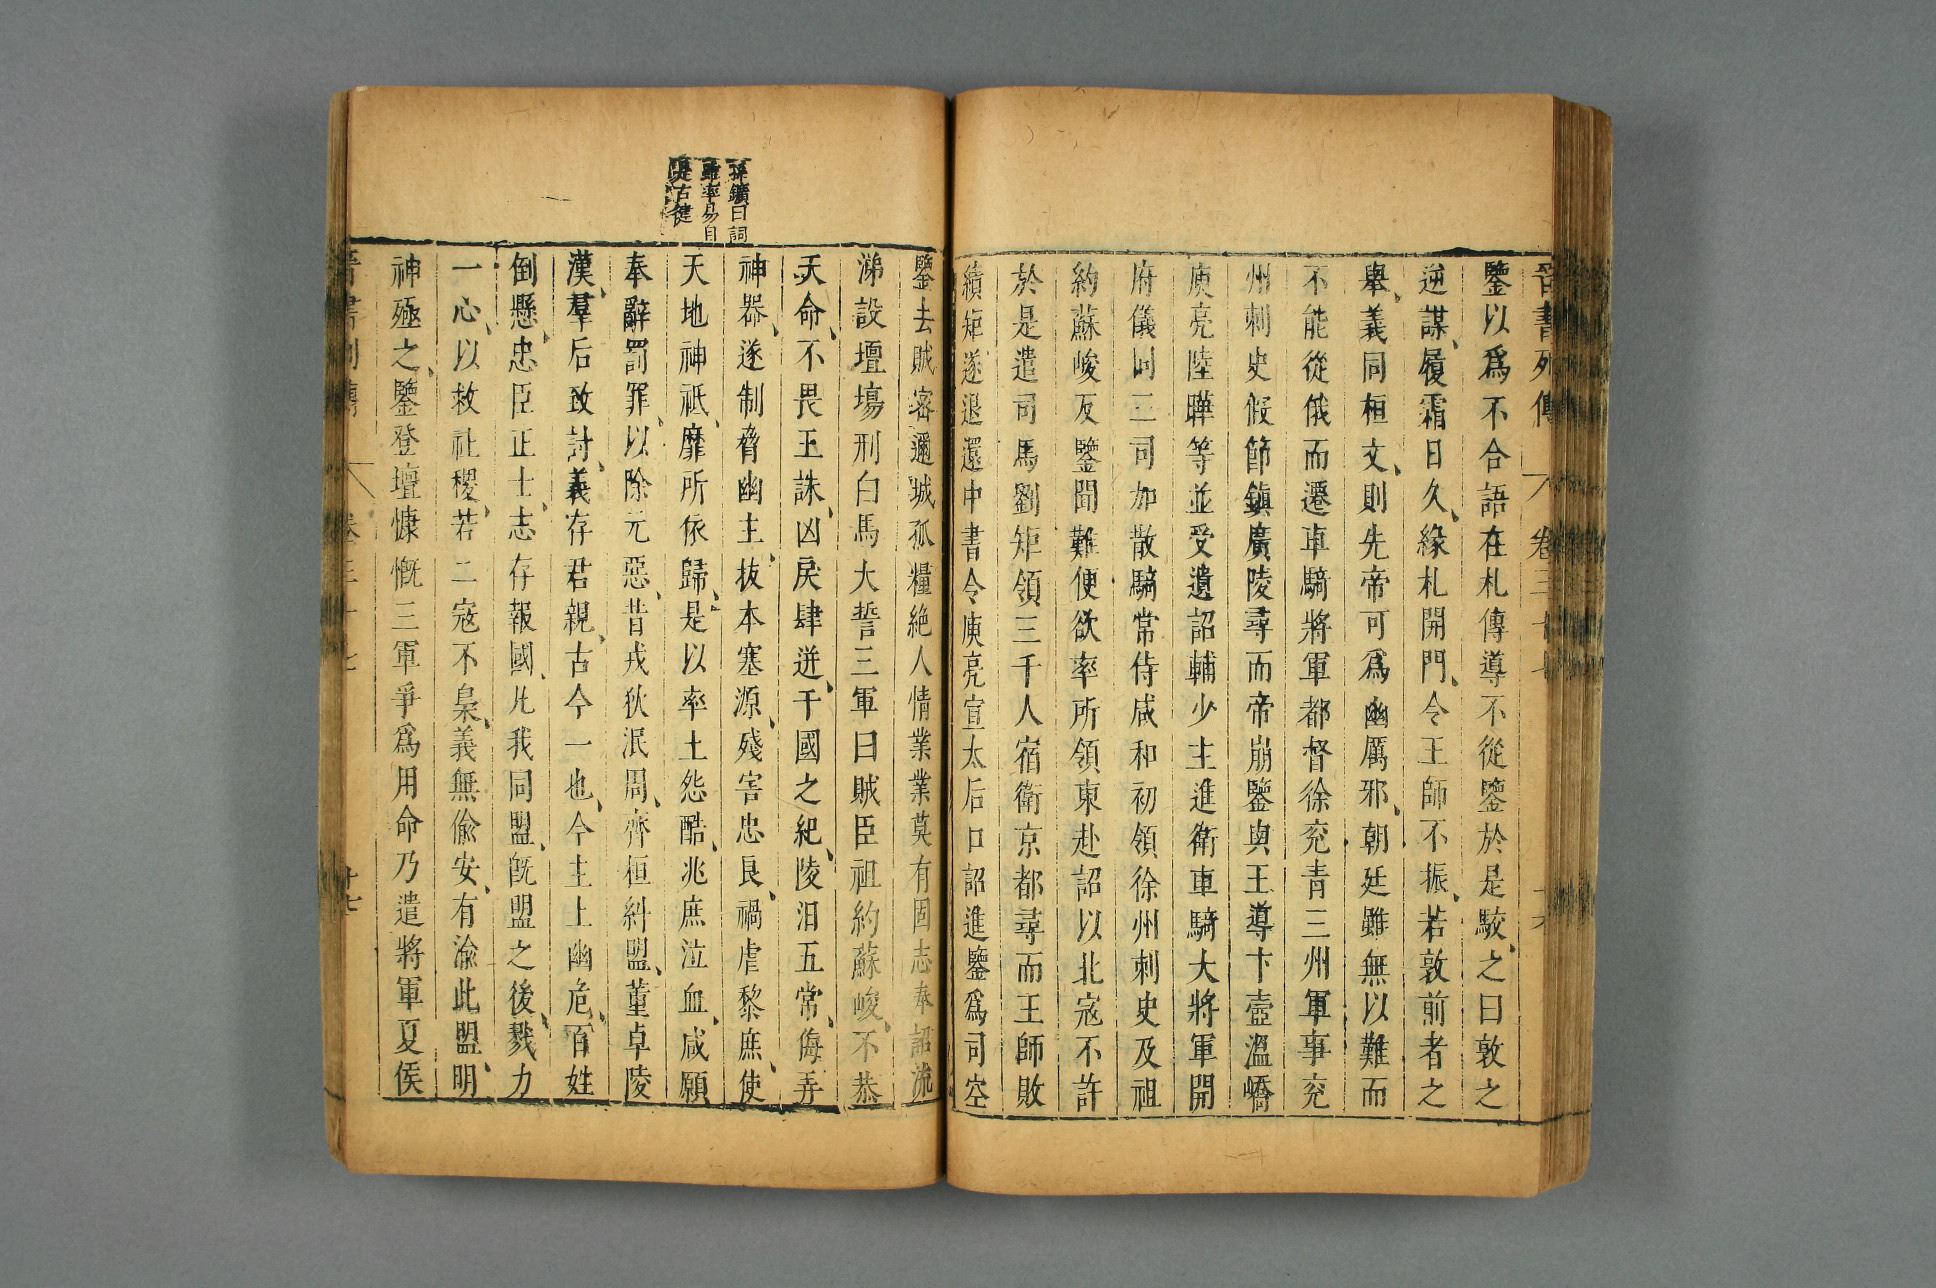 晉書列傳 卷三十七 十六
鑒以爲不合語在札傳導不從鑒於是駮之曰敦之
逆謀履霜日久緣札開門令王師不振若敦前者之
舉義同桓文則先帝可爲幽厲邪朝廷雖無以難而
不能從俄而遷車騎將軍都督徐兗青三州軍事兗
州刺史假節鎮廣陵尋而帝崩鑒與王導卞壼溫嶠
庾亮陸曄等並受遺詔輔少主進衛車騎大將軍開
府儀同三司加散騎常侍咸和初領徐州刺史及祖
約蘇峻反鑒聞難便欲率所領東赴詔以北寇不許
於是遣司馬劉矩領三千人宿衛京都尋而王師敗
績矩遂退還中書令庾亮宣太后口詔進鑒爲司空
鑒去賊密邇城孤糧絶人情業業莫有固志奉詔流
涕設壇場刑白馬大誓三軍曰賊臣祖約蘇峻不恭
天命不畏王誅凶戾肆逆干國之紀陵汨五常侮弄
神器遂制脅幽主抜本塞源殘害忠良禍虐黎庶使
天地神祇靡所依歸是以率土怨酷兆庶泣血咸願
奉辭罰罪以除元惡昔戎狄泯周齊桓糾盟董卓陵
漢羣后致討義存君親古今一也今主上幽危百姓
倒懸忠臣正士志存報國凡我同盟旣盟之後戮力
一心以救社稷若二寇不梟義無偷安有渝此盟明
神殛之鑒登壇慷慨三軍爭爲用命乃遣將軍夏侯
孫鑛曰詞
雖率易自
是古健
晉書列傳 卷三十七 十七